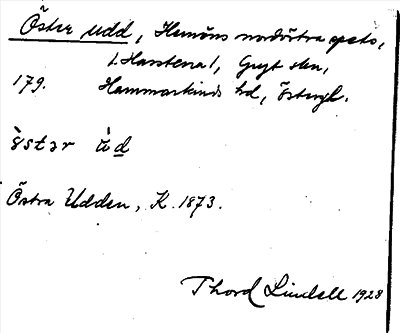 Öster udd, Hemöns nordöstra spets,
i Harstena 1, Gryt skn,
179. Hammarkinds hd, Östergl.
ö̀stər ùd
Östra Udden, K. 1873.
Thord Lindell 1928